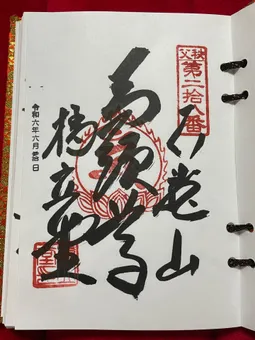 秩父
第二拾八番
石龍山
馬頭尊
橋立堂
令和六年六月吉日